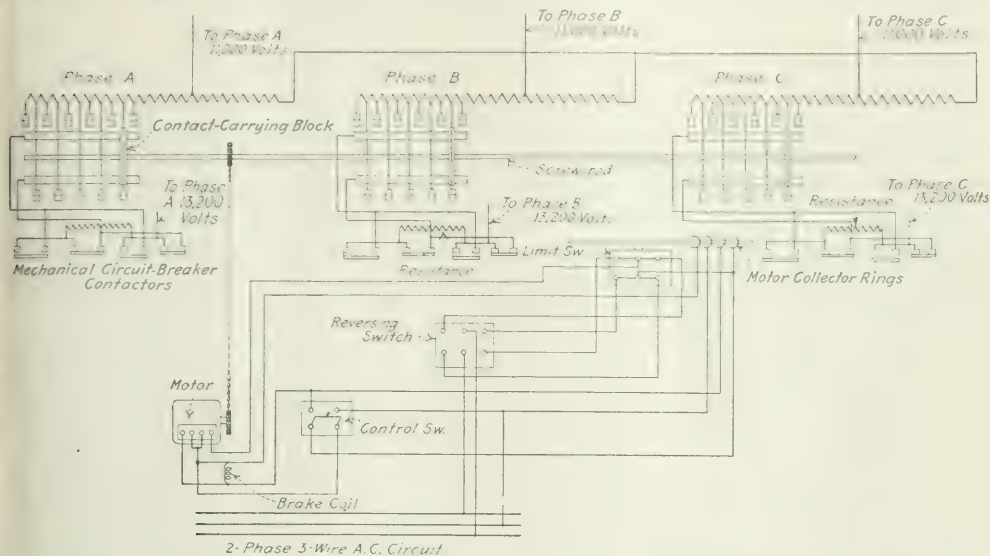 To Phase A
11,000 Volts
To Phase B
11,000 Volts
To Phase C
11,000 Volts
Phase A
Phase B
Phase C
Contact-Carrying Block
Screw rod
To Phase
A 13,200
Volts
To Phase B
13,200 Volts
To Phase C
13,200 Volts
Resistance
Limit Sw
Resistance
Mechanical Circuit-Breaker
Contactors
Motor Collector Rings
Reversing
Switch
Motor
Control Sw.
Brake Coil
2-Phase 3-Wire A.C. Circuit